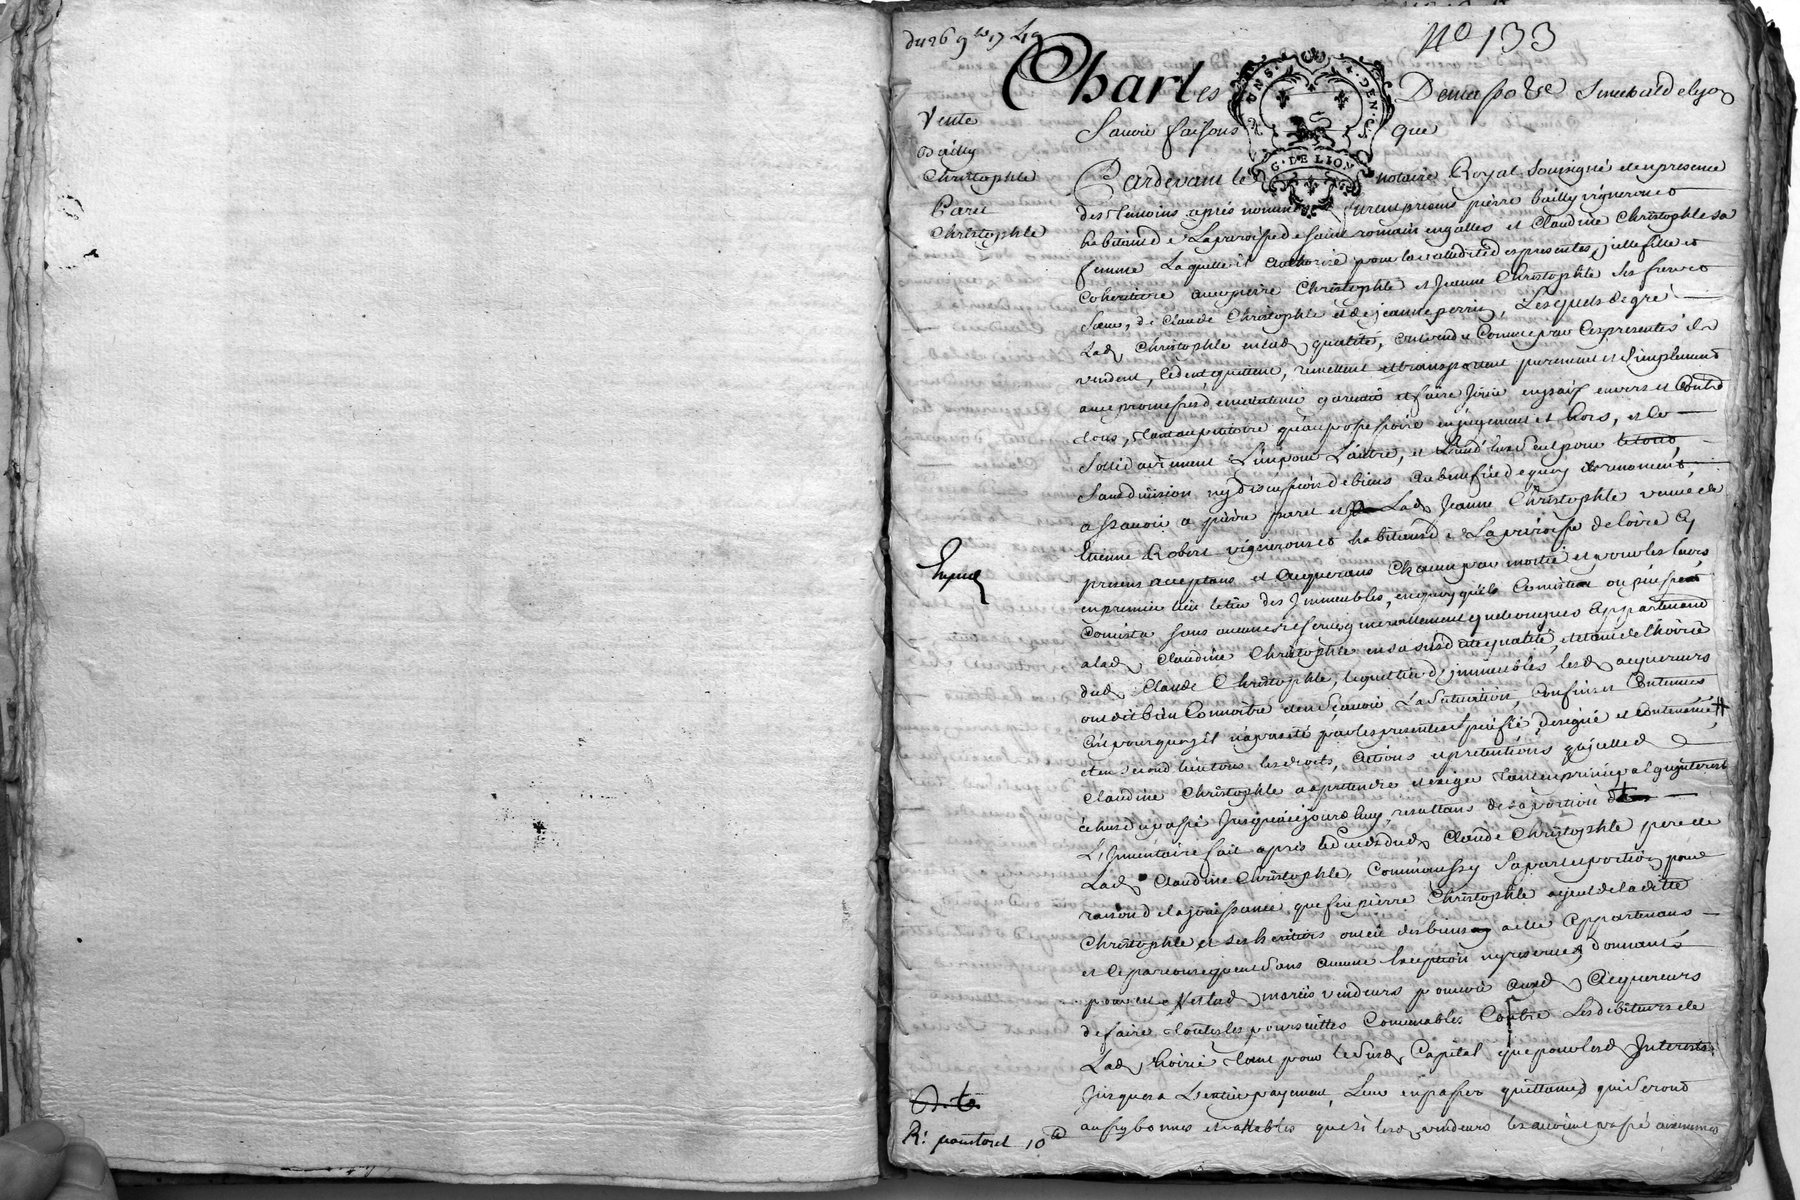 du 26 9bre 17
No 133
Charles
Demasso &c Seneschal de lyon
Savoir faisons que
GEN. DE LION
Vente
Bailly
Christophle
Paret
Christophle
Pardevant le notaire Royal Soussigné et en presence
des temoins après nommés furent presens pierre bailly vigneron et
habitant de La paroisse de saint romain en galles et Claudine Christophle sa
femme Laquelle il authorise pour la validité des presentes, jcelle fille et
Coheritiere avec pierre Christophle et Jeanne Christophle ses frere et
Sœur, de Claude Christophle et de jeanne perrin, Lesquels de gré
Lad Christophle en lad qualité, ont vendu Comme par Ces presentes ils
vendent, Cedent, quittent, remettent et transportent purement et simplement
avec promesses de maintenir garentir et faire Jouir envers et Contre
tous, tant au petitoire qu'au possessoire en jugement et hors, et ce
Sollidairement L'un pour L'autre, et L'un d'eux Seul pour le tout,
Sans division ny discussion de biens au benefice de quoy ils renoncent,
a sçavoir a pierre paret et Lad Jeanne Christophle veuve de
Etienne Robert vignerons et habitans de La paroisse de loire Cy
presens acceptans et acquerans Chacun par moitié et pour les leurs
en premier lieu le tiers des Immeubles, en quoy qu'ils Consistent ou puissent
Consister sans aucune reserve generallement quelconques appartenant
a lad Claudine Christophle en sa susditte qualité, et dans de L'hoirie
dud Claude Christophle, lequel tiers d'jmmeubles lesd acquereurs
ont dit bien Connoitre et en sçavoir La Situation, Confins et Contenues
C'est pourquoy il n'a pas eté par les presentes specifié designé et Contenancé, #
et en second lieu tous les droits, actions et pretentions qu'jcelle
Claudine Christophle a a pretendre et exiger tant en principal qu'interest
echus du passé Jusques a ce jourd'huy, resultans de sa portion de
L'Inventaire fait après le deces dud Claude Christophle pere de
Lad Claudine Christophle, Comme aussy sa part et portion pour
raison de la jouissance que feu pierre Christophle ayeul de la ditte
Christophle et ses heritiers ont eu des biens a elle appartenans
et Ce par consequent sans aucune exeption ny reserve, donnants
pour cet effet lad mariés vendeurs pouvoir auxd acquereurs
de faire toutes les poursuittes Convenables Contre Les debiteurs de
Lad hoirie tant pour le susd Capital que pour lesd Interests
Jusques a L'entier payement, Leur en passer quittances qui seront
aussy bonnes et vallables que si lesd vendeurs les avoient passé